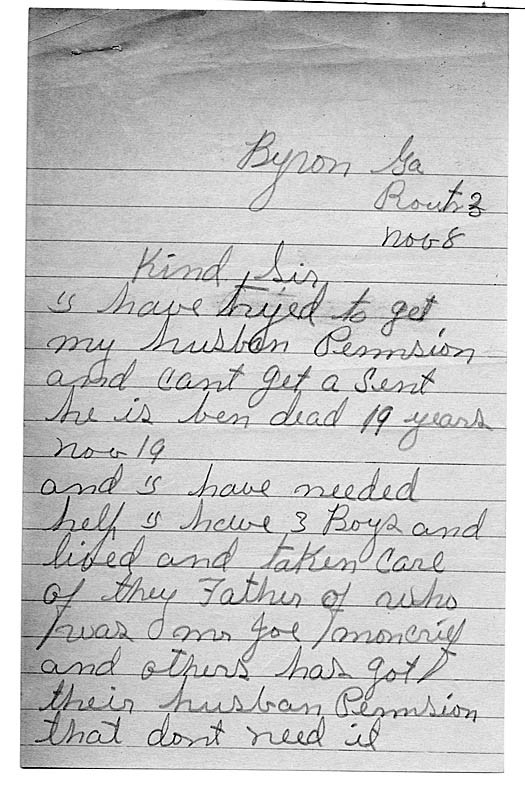 Byron Ga
Rout 3
nov 8
Kind Sir
I have tryed to get
my husban Pennsion
and cant get a Sent
he is ben dead 19 years
nov 19
and I have needed
help I have 3 Boys and
lived and taken care
of they Father of who
was mr Joe moncrif
and others has got
their husban Pennsion
that dont need it